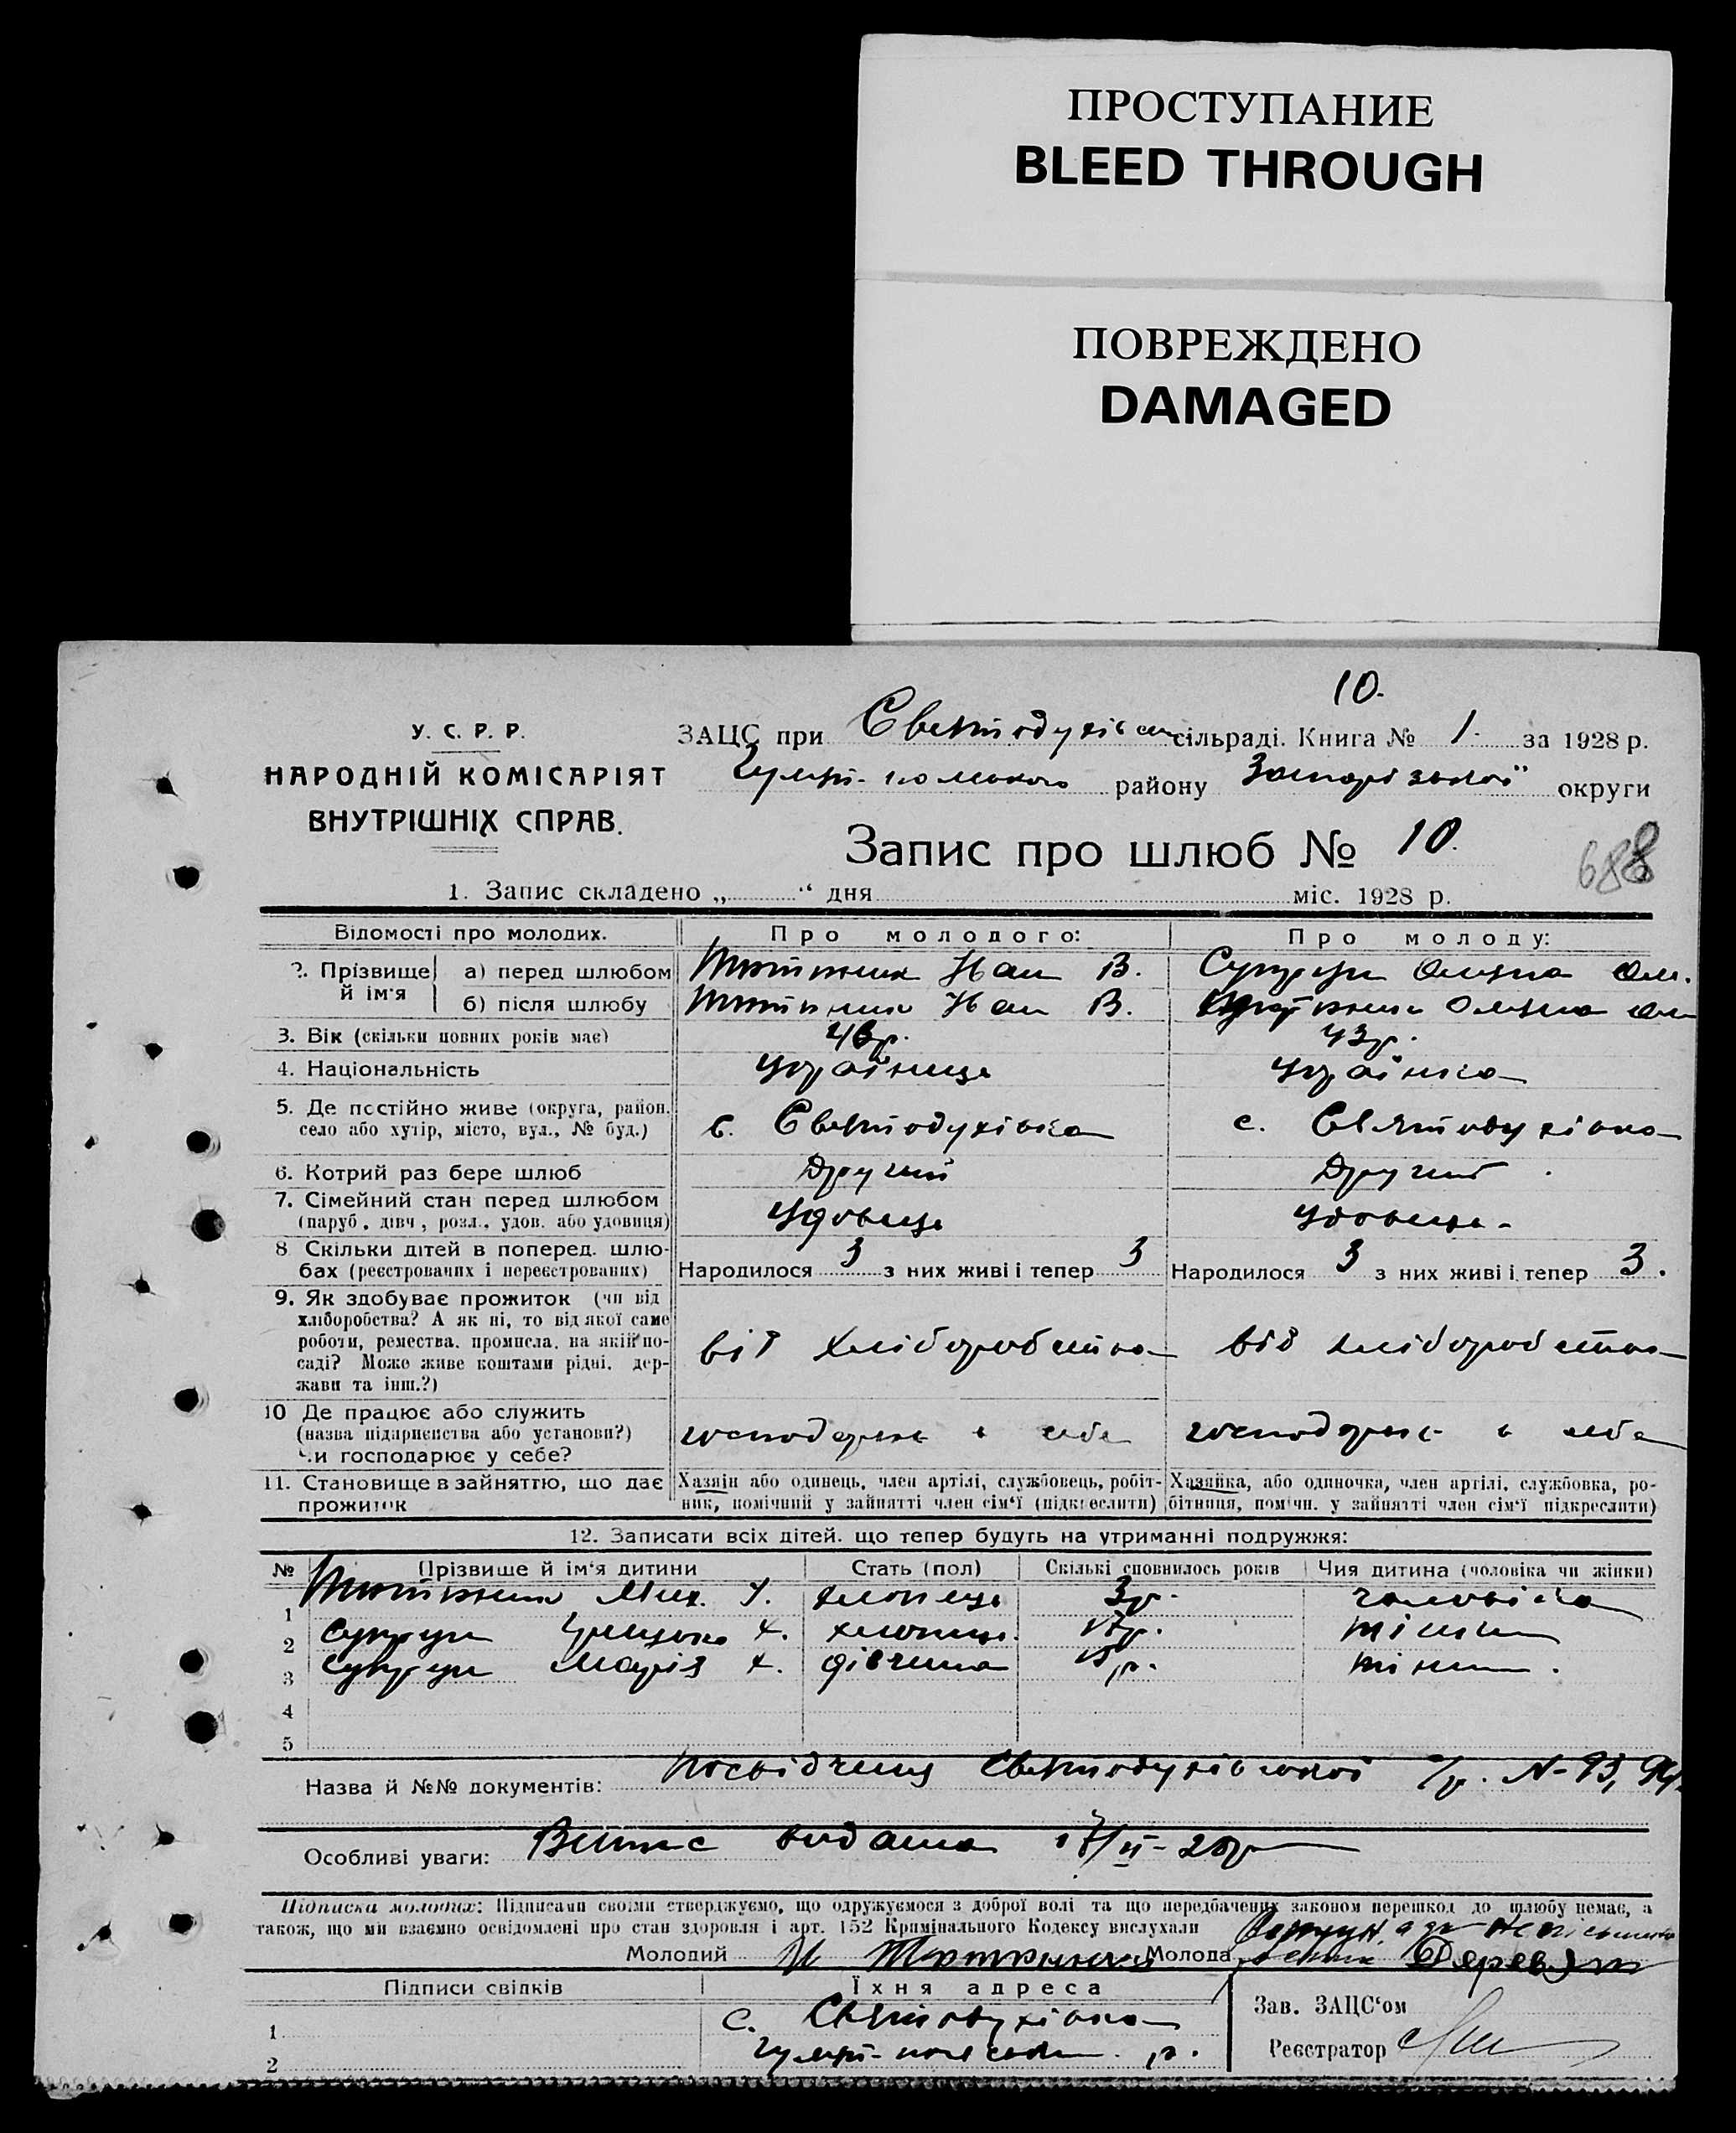 ПРОСТУПАНИЕ
BLEED THROUGH
ПОВРЕЖДЕНО
DAMAGED
10.
У. С. Р. Р.
НАРОДНІЙ КОМІСАРІЯТ
ВНУТРІШНІХ СПРАВ.
ЗАЦС при сільраді. Книга № 1. за 1928 р.
району Запорізької округи
Запис про шлюб № 10.
688
1. Запис складено „ “ дня міс. 1928 р.
Відомості про молодих. Про молодого: Про молоду:
2. Прізвище й ім'я а) перед шлюбом Іван В. Супрун
б) після шлюбу Іван В.
3. Вік (скільки повних років має) 43р.
4. Національність українець українка
5. Де постійно живе (округа, район, село або хутір, місто, вул., № буд.) с. Святодухівка с. Святодухівка
6. Котрий раз бере шлюб Другий Другий
7. Сімейний стан перед шлюбом (паруб., дівч., розл., удов. або удовиця) удовець удовиця
8. Скільки дітей в поперед. шлюбах (реєстрованих і нереєстрованих) Народилося 3 з них живі і тепер 3 Народилося 3 з них живі і тепер 3.
9. Як здобуває прожиток (чи від
хліборобства? А як ні, то від якої саме
роботи, ремества, промисла, на якій по-
саді? Може живе коштами рідні, дер-
жави та інш.?) від хліборобства від хліборобства
10 Де працює або служить
(назва підприємства або установи?)
Чи господарює у себе? господарює в себе господарює в себе
11. Становище в зайняттю, що дає прожиток
Хазяін або одинець, член артілі, службовець, робіт-
ник, помічний у зайнятті член сім'ї (підкреслити)
Хазяйка, або одиночка, член артілі, службовка, ро-
бітниця, помічн. у зайнятті член сім'ї підкреслити)
12. Записати всіх дітей, що тепер будуть на утриманні подружжя:
№ Прізвище й ім'я дитини Стать (пол) Скількі сповнилось років Чия дитина (чоловіка чи жінки)
1 Мих. І. хлопець 3р. чоловіка
2 Супрун Грицько Х. хлопець. 17р. жінки
3 Супрун Марія Х. дівчина жінки.
4
5
Назва й №№ документів: посвідчення Святодухівської с/р. № 93, 94
Особливі уваги: Випис видана 17/II-28р
Підписка молодих: Підписами своїми стверджуємо, що одружуємося з доброї волі та що передбачених законом перешкод до шлюбу немає, а
також, що ми взаємно освідомлені про стан здоровля і арт. 152 Кримінального Кодексу вислухали
Молодий Молода
Підписи свідків Їхня адреса Зав. ЗАЦС'ом
1 с. Святодухівка
2 Реєстратор